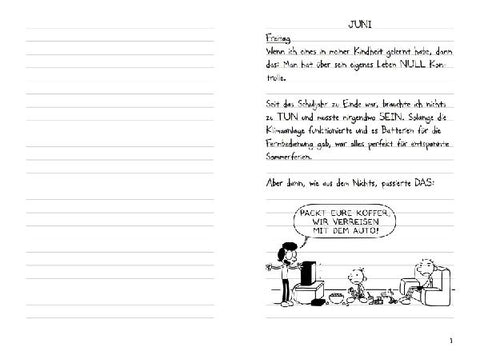 JUNI
Freitag
Wenn ich eines in meiner Kindheit gelernt habe, dann
das: Man hat über sein eigenes Leben NULL Kon-
trolle.
Seit das Schuljahr zu Ende war, brauchte ich nichts
zu TUN und musste nirgendwo SEIN. Solange die
Klimaanlage funktionierte und es Batterien für die
Fernbedienung gab, war alles perfekt für entspannte
Sommerferien.
Aber dann, wie aus dem Nichts, passierte DAS:
PACKT EURE KOFFER,
WIR VERREISEN
MIT DEM AUTO!
1